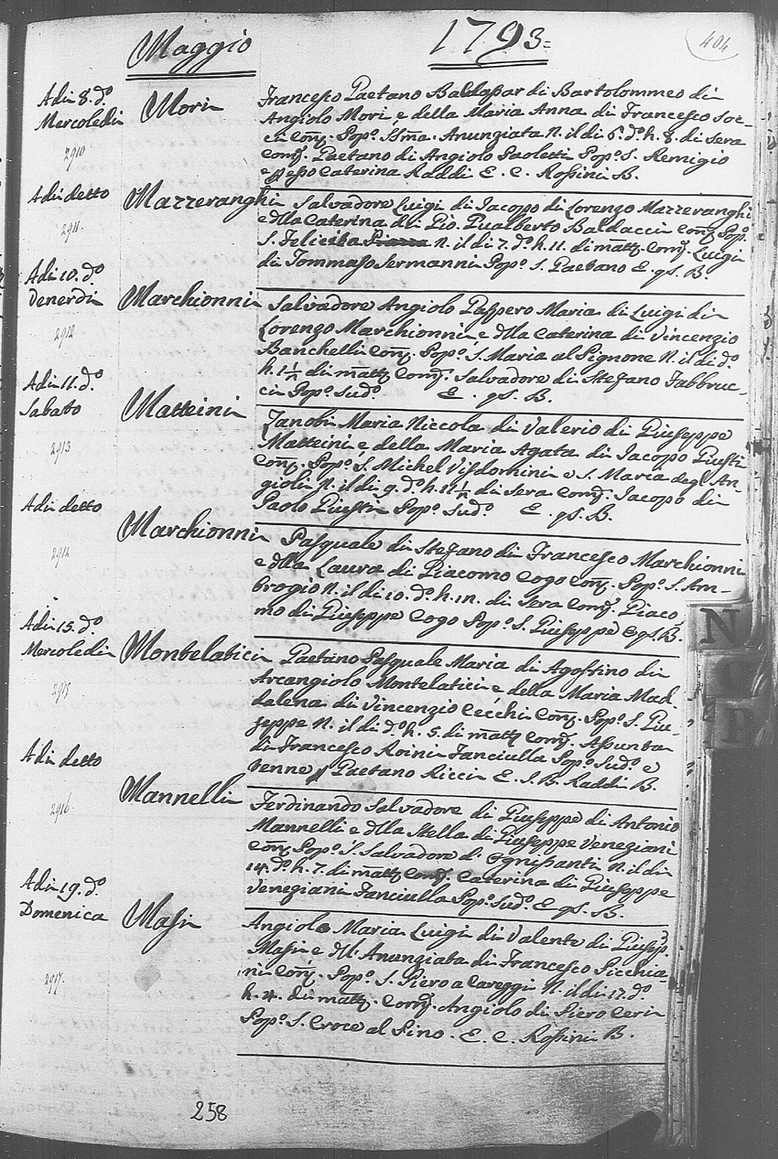 Maggio 1793=
404
Adi 8. d.o
Mercoledi
2910
Mori
Francesco Gaetano Baldassar di Bartolommeo di
Angiolo Mori e della Maria Anna di Francesco Soc-
ci Conj. Pop.o SSma. Anungiata N. il di 6. d.o h. 8. di Sera
Comp. Gaetano di Angiolo Paoletti Pop.o S. Remigio
e p esso Caterina Raddi E. C. Rossini B.
Adi detto
2911.
Mazzeranghi
Salvadore Luigi di Jacopo di Lorenzo Mazzeranghi
e dlla Caterina del Gio. Gualberto Baldacci Conj. Pop.o
S. Felicita N. il di 7. d.o h. 11. di matt. Comp. Luigi
di Tommaso Sermanni Pop.o S. Gaetano E. gs. B.
Adi 10. d.o
Venerdi
2912
Marchionni
Salvadore Angiolo Passero Maria di Luigi di
Lorenzo Marchionni e dlla Caterina di Vincenzio
Banchelli Conj. Pop.o S. Maria al Pignone N. il di d.o
h. 1½ di matt. Comp. Salvadore di Stefano Fabbruc-
ci Pop.o Sud.o E. gs. B.
Adi 11. d.o
Sabato
2913
Matteini
Zanobi Maria Niccola di Valerio di Giuseppe
Matteini e della Maria Agata di Jacopo Giusti
Conj. Pop.o S. Michel Visdomini e S. Maria degl'An-
gioli N. il di 9. d.o h. 11½ di Sera Comp. Jacopo di
Paolo Giusti Pop.o Sud.o E. gs. B.
Adi detto
2914
Marchionni
Pasquale di Stefano di Francesco Marchionni
e dlla Laura di Giacomo Cogo Conj. Pop.o S. Am-
brogio N. il di 10. d.o h. di Sera Comp. Giaco-
mo di Giuseppe Cogo Pop.o S. Giuseppe E gs. B.
Adi 15. d.o
Mercoledi
2915
Montelatici
Gaetano Pasquale Maria di Agostino di
Arcangiolo Montelatici e della Maria Mad-
dalena di Vincenzio Cecchi Conj. Pop.o S. Giu-
seppe N. il di d.o h. 5. di matt. Comp. Assunta
di Francesco Roini Fanciulla Pop.o Sud.o e
tenne p Gaetano Ricci E. J. B. Raddi B.
Adi detto
2916
Mannelli
Ferdinando Salvadore di Giuseppe di Antonio
Mannelli e dlla Stella di Giuseppe Venegiani
Conj. Pop.o S. Salvadore d'Ognissanti N. il di
14. d.o h. 7. di matt. Comp. Caterina di Giuseppe
Venegiani Fanciulla Pop.o Sud.o E. gs. B.
Adi 19. d.o
Domenica
2917.
Masi
Angiolo Maria Luigi di Valente di Giusep.
Masi e dll' Anungiata di Francesco Picchia-
ni Conj. Pop.o S. Piero a Careggi N. il di 17. d.o
h. 4. di matt. Comp. Angiolo di Piero Ceri
Pop.o S. Croce al Pino. E. C. Rossini B.
258
N
C
R